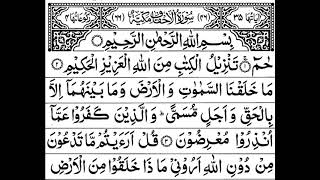 اٰیَاتُهَا ۳۵ (۴۶) سُوْرَةُ الْاَحْقَافِ مَكِّیَّةٌ (۶۶) رُكُوْعَاتُهَا ۴
بِسْمِ اللّٰهِ الرَّحْمٰنِ الرَّحِیْمِ
حٰمٓ ۚ تَنْزِیْلُ الْكِتٰبِ مِنَ اللّٰهِ الْعَزِیْزِ الْحَكِیْمِ ۲
مَا خَلَقْنَا السَّمٰوٰتِ وَ الْاَرْضَ وَ مَا بَیْنَهُمَاۤ اِلَّا
بِالْحَقِّ وَ اَجَلٍ مُّسَمًّی ؕ وَ الَّذِیْنَ كَفَرُوْا عَمَّاۤ
اُنْذِرُوْا مُعْرِضُوْنَ ۳ قُلْ اَرَءَیْتُمْ مَّا تَدْعُوْنَ
مِنْ دُوْنِ اللّٰهِ اَرُوْنِیْ مَا ذَا خَلَقُوْا مِنَ الْاَرْضِ